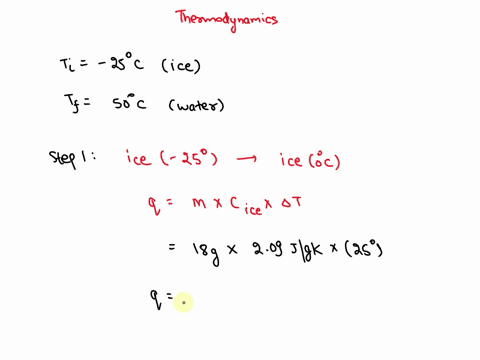 Thermodynamics
Ti = -25°C (ice)
Tf = 50°C (water)
Step 1: ice (-25°) → ice (0°C)
q = m x Cice x ΔT
= 18g x 2.09 J/gK x (25°)
q =